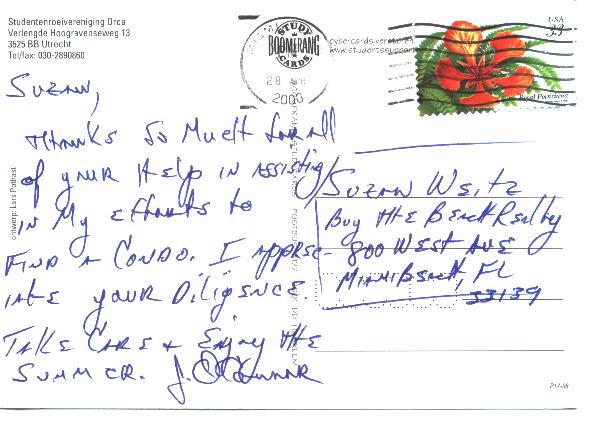 Studentenroeivereniging Orca
Verlengde Hoogravenseweg 13
3525 BB Utrecht
Tel/fax: 030-2890860
STUDY
BOOMERANG
CARDS
28
2000
www.studentssupport
USA
33
Royal Poinciana
Suzan,
Thanks so much for all
of your help in assisting
in my efforts to
find a condo. I apprec-
iate your diligence.
Take care & enjoy the
summer. J. O'Connor
Suzan Weitz
Buy the Beach Realty
800 West Ave
Miami Beach, FL
33139
ontwerp: Lars Pothast